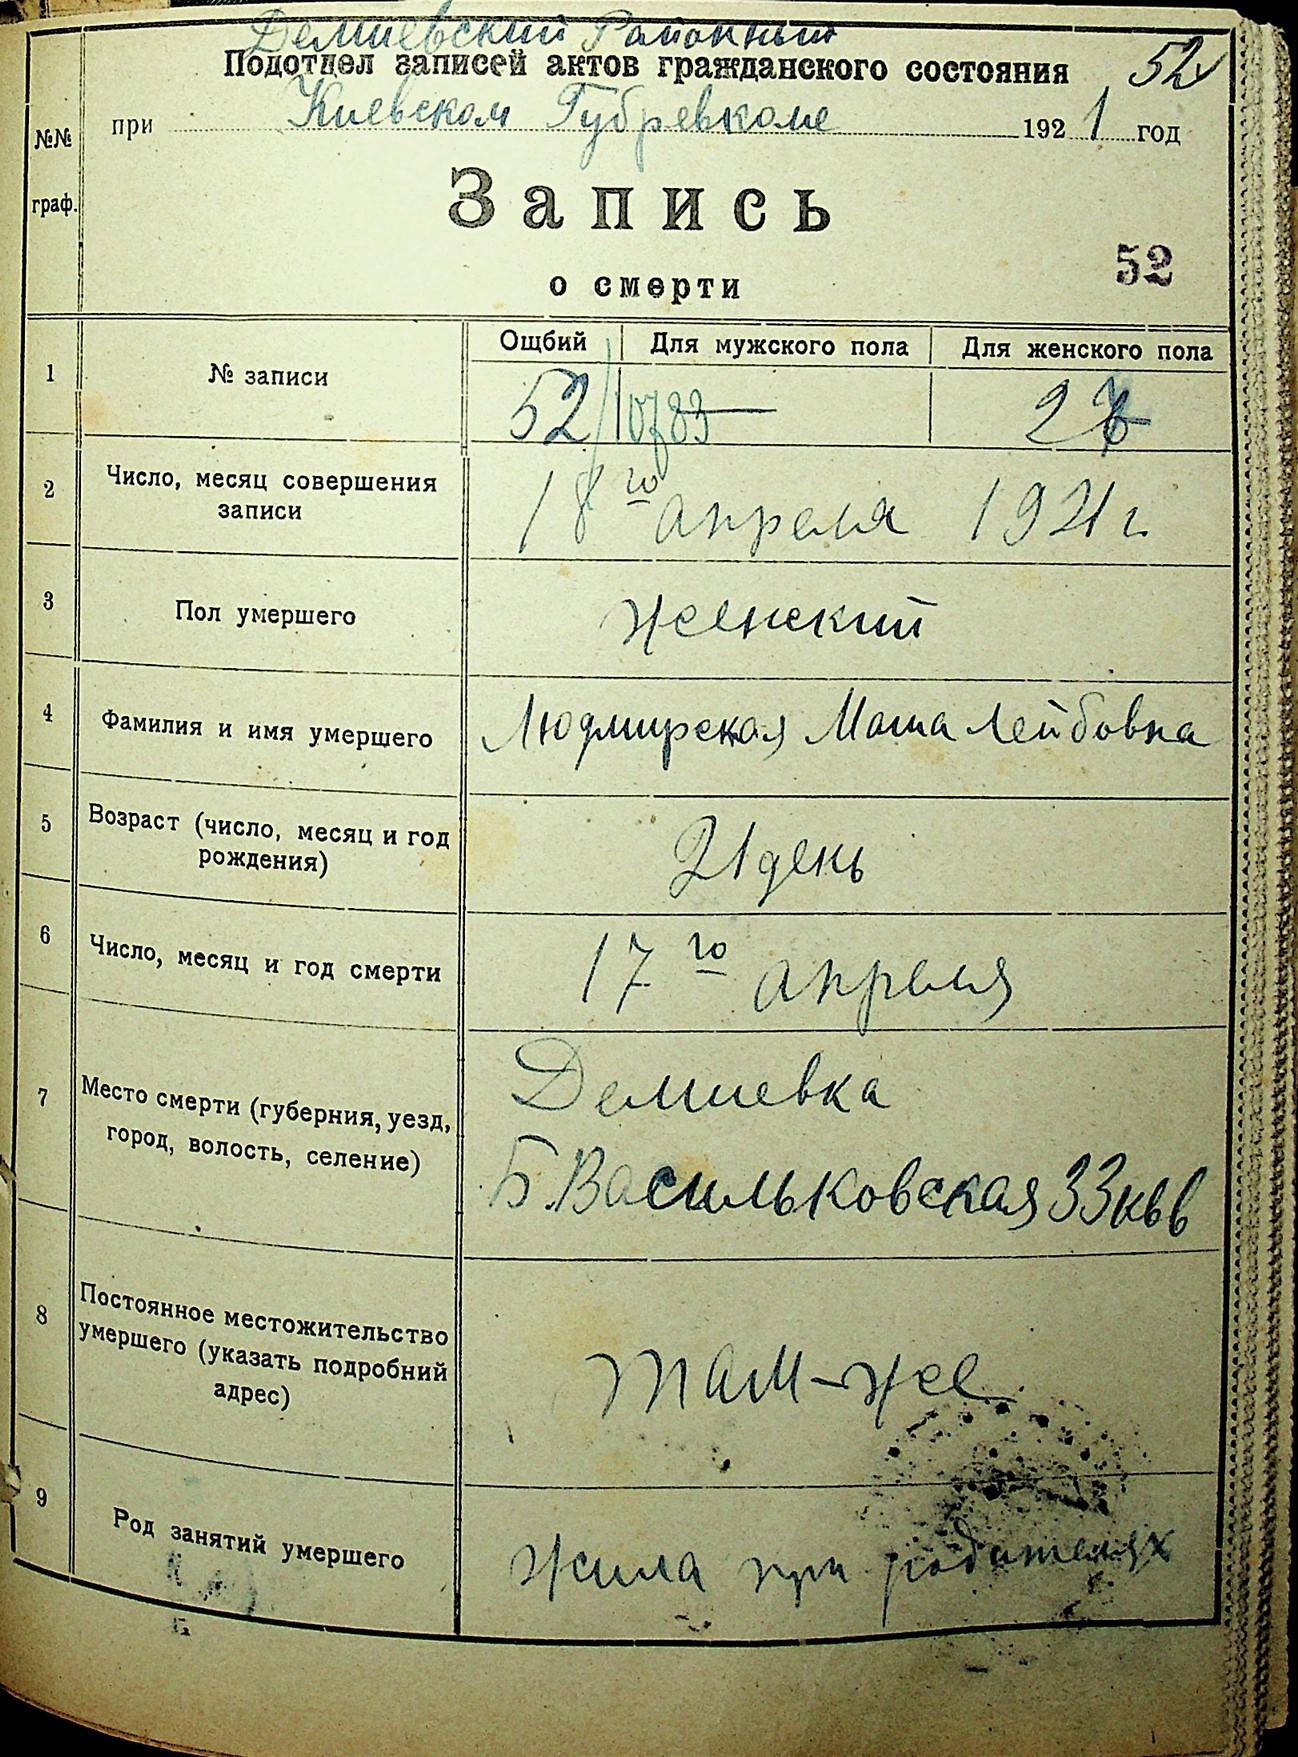 Демиевский Районный
Подотдел записей актов гражданского состояния
52
при Киевском Губревкоме 1921 год
№№
граф.
Запись
52
о смерти
Ощбий Для мужского пола Для женского пола
1 № записи 52 10783 — 2
2 Число, месяц совершения
записи
18го апреля 1921 г.
3 Пол умершего женский
4 Фамилия и имя умершего Людмирская Маша Лейбовна
5 Возраст (число, месяц и год
рождения)
21 день
6 Число, месяц и год смерти 17го апреля
7 Место смерти (губерния, уезд,
город, волость, селение)
Демиевка
Б. Васильковская 33 кв 6
8 Постоянное местожительство
умершего (указать подробний
адрес)
там-же
9 Род занятий умершего жила при родителях